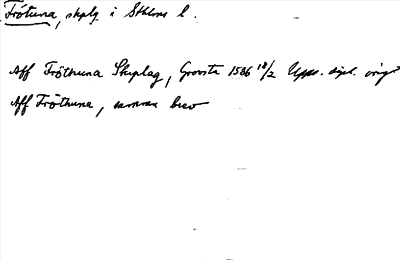 Frötuna, skplg i Sthlms l.
Aff Fröthuna Skeplag, Grovsta 1506 18/2 Upps. dipl. orig
Aff Fröthuna, samma brev